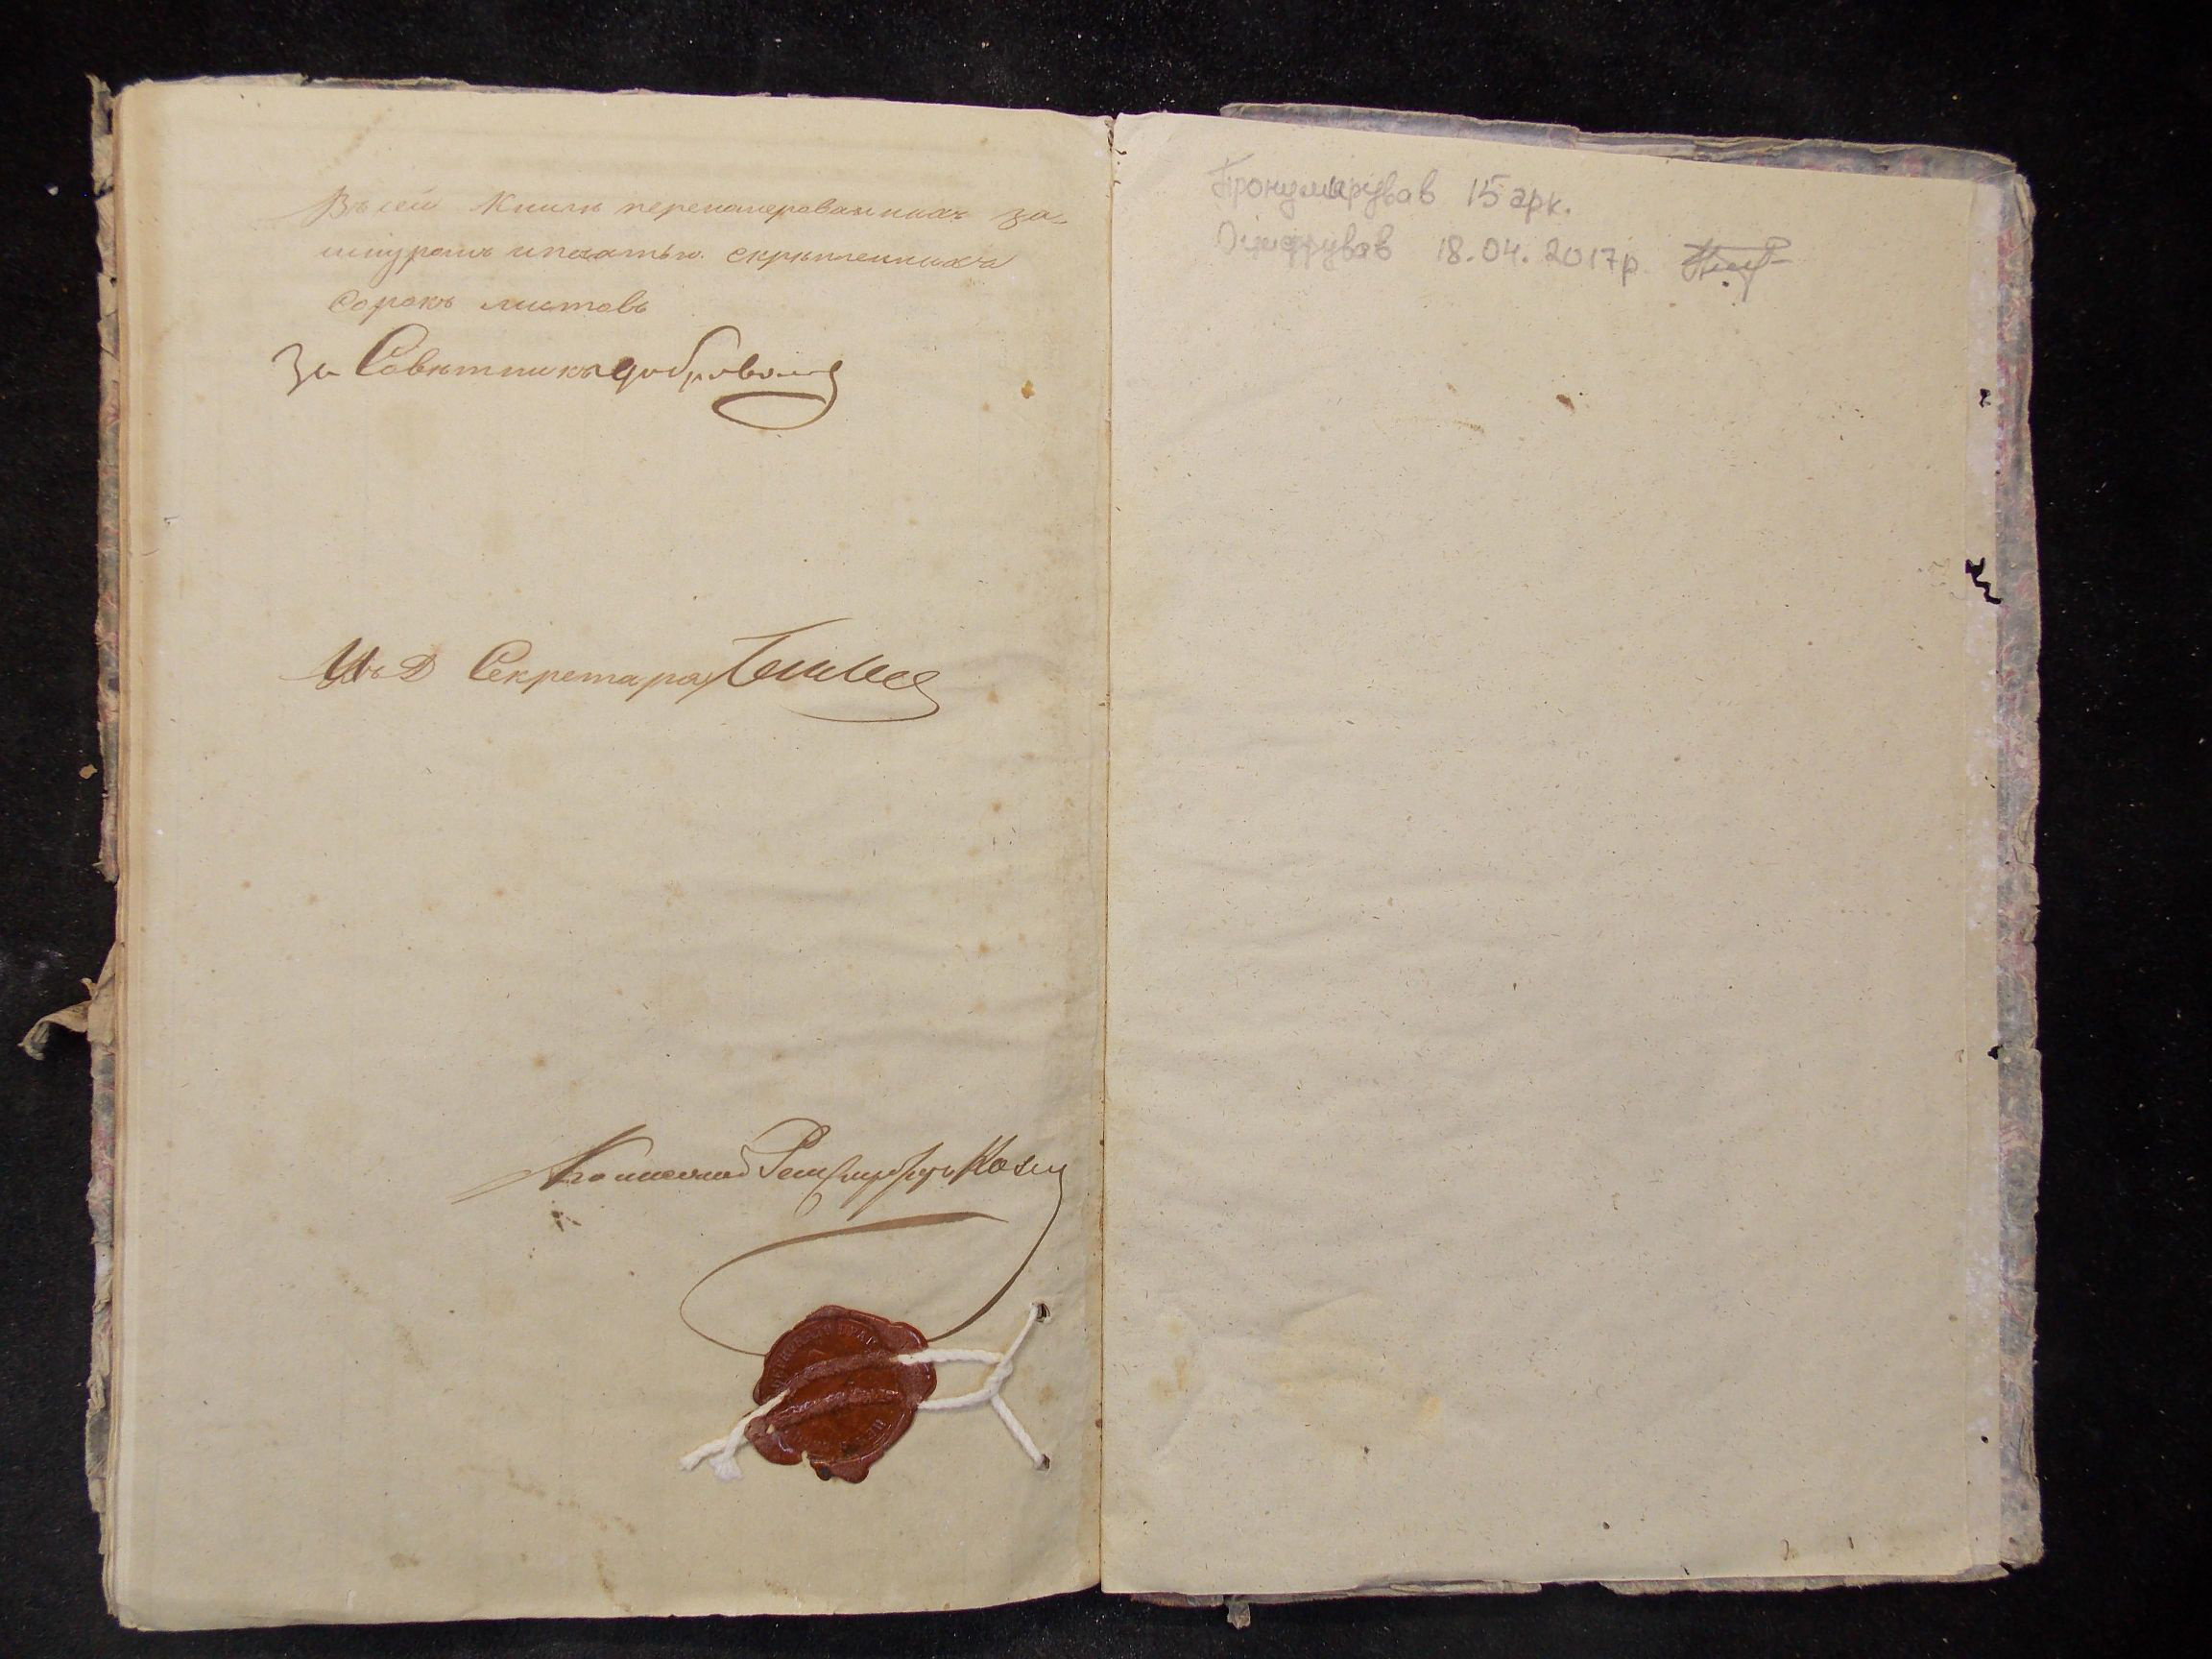 Въ сей Книгѣ перенамерованныхъ за
шнуромъ и печатью скрѣпленныхъ
Сорокъ листовъ
За Совѣтника
И Д Секретаря
Коллежский Регистраторъ
Пронумерував 15 арк.
Оцифрував 18.04.2017р.